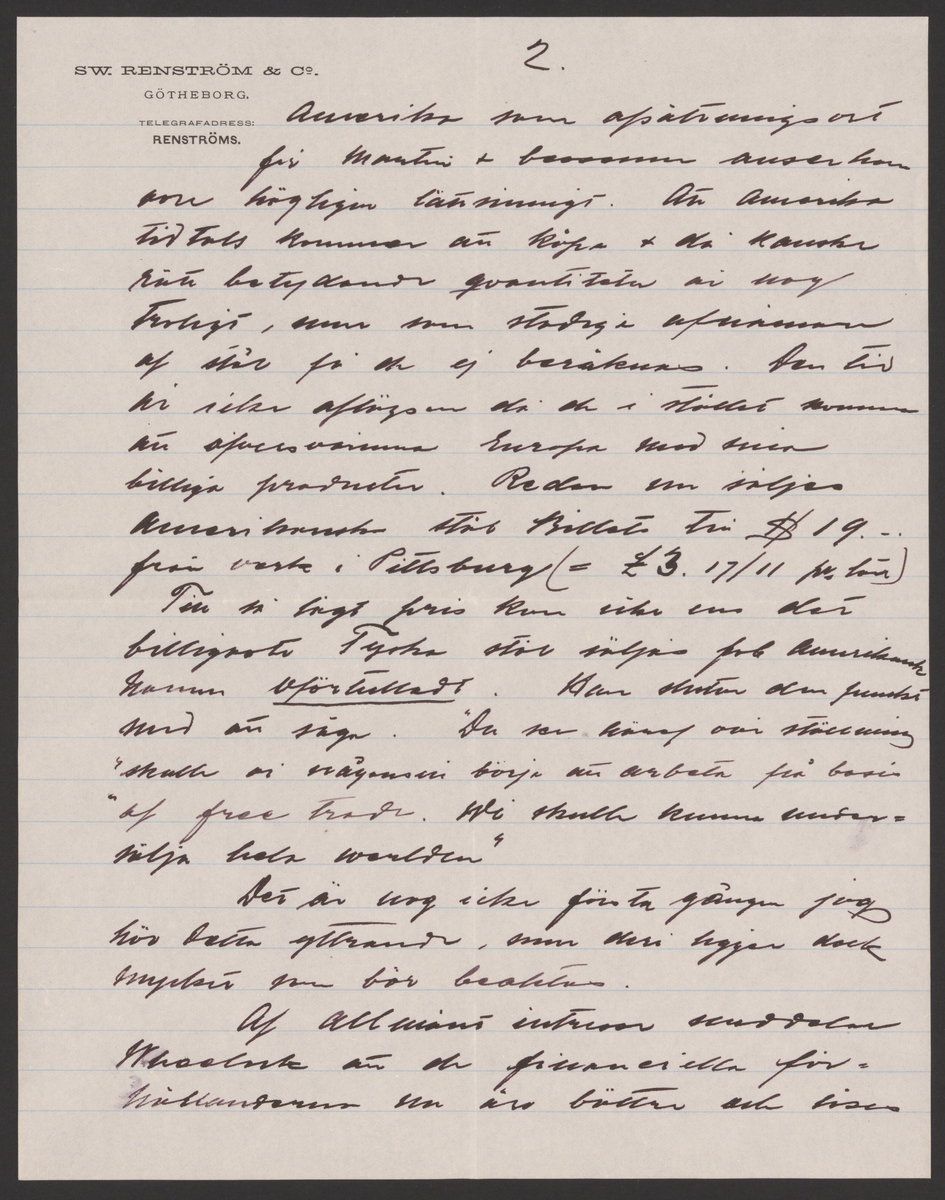 2.
SW. RENSTRÖM & Cº.
GÖTHEBORG.
TELEGRAFADRESS:
RENSTRÖMS.
Amerika som afsättningsort
för Martin & bessemer anser han
vore högligen lättsinnigt. Att Amerika
tidtals kommer att köpa & då kanske
rätt betydande qvantiteter är nog
troligt, men som stadiga afnämare
af stål få de ej beräknas. Den tid
är icke aflägsen då de i stället komma
att öfversvämma Europa med sina
billiga producter. Redan nu säljes
Amerikanska stål Billets till $ 19.--
från verk i Pittsburg (= £ 3. 17/11 pr ton)
Till så lågt pris kan icke ens det
billigaste Tyska stål säljas fob Amerikansk
Hamn oförtulladt. Han slutar den punkt
med att säga. "Du ser häraf vår ställning
"skulle vi någonsin börja att arbeta på basis
"af free trade. Vi skulle kunna under=
sälja hela verlden"
Det är nog icke första gången jag
hör detta yttrande, men deri ligger dock
mycket som bör beaktas.
Af allmänt intresse meddelar
Wheelock att de financiella för=
hållanderna nu äro bättre och